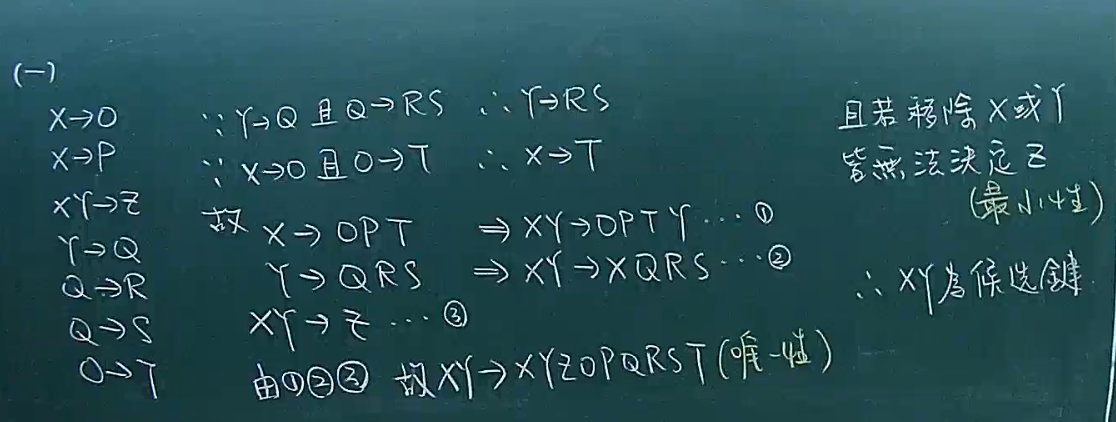 (一)
X→O
X→P
XY→Z
Y→Q
Q→R
Q→S
O→T
∵Y→Q且Q→RS ∴Y→RS
∵X→O且O→T ∴X→T
故 X→OPT ⇒XY→OPTY…①
Y→QRS ⇒XY→XQRS…②
XY→Z…③
由①②③ 故XY→XYZOPQRST(唯一性)
且若移除X或Y
皆無法決定Z
(最小性)
∴XY為候选鍵